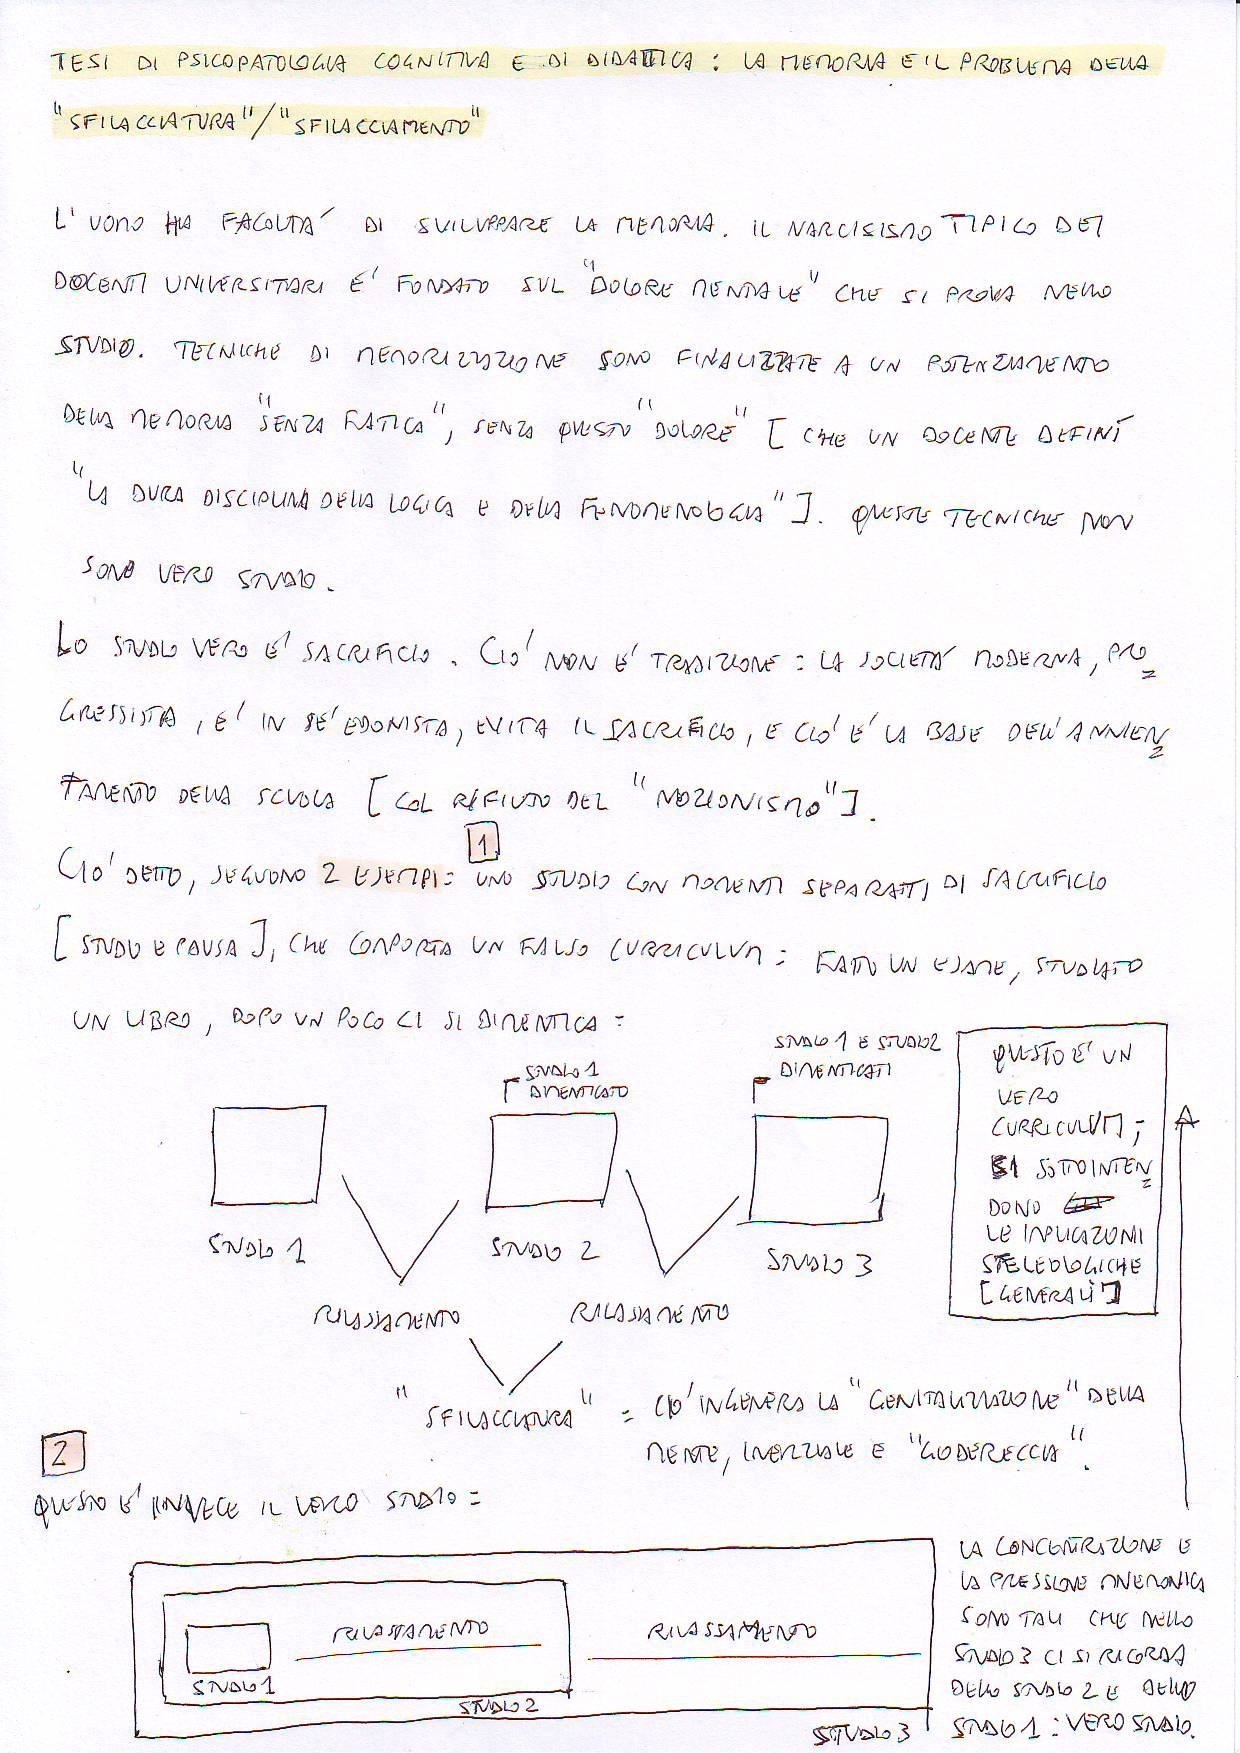 TESI DI PSICOPATOLOGIA COGNITIVA E DI DIDATTICA : LA MEMORIA E IL PROBLEMA DELLA
"SFILACCIATURA"/"SFILACCIAMENTO"
L'UOMO HA FACOLTA' DI SVILUPPARE LA MEMORIA. IL NARCISISMO TIPICO DEI
DOCENTI UNIVERSITARI E' FONDATO SUL "DOLORE MENTALE" CHE SI PROVA NELLO
STUDIO. TECNICHE DI MEMORIZZAZIONE SONO FINALIZZATE A UN POTENZIAMENTO
DELLA MEMORIA "SENZA FATICA", SENZA QUESTO "DOLORE" [ CHE UN DOCENTE DEFINÌ
"LA DURA DISCIPLINA DELLA LOGICA E DELLA FENOMENOLOGIA"]. QUESTE TECNICHE NON
SONO VERO STUDIO.
LO STUDIO VERO E' SACRIFICIO. CIO' NON E' TRADIZIONE : LA SOCIETA' MODERNA, PRO=
GRESSISTA, E' IN SE' EDONISTA, EVITA IL SACRIFICIO, E CIO' E' LA BASE DELL'ANNIEN=
TAMENTO DELLA SCUOLA [ COL RIFIUTO DEL "NOZIONISMO"].
1
CIO' DETTO, SEGUONO 2 ESEMPI : UNO STUDIO CON MOMENTI SEPARATI DI SACRIFICIO
[ STUDIO E PAUSA ], CHE COMPORTA UN FALSO CURRICULUM : FATTO UN ESAME, STUDIATO
UN LIBRO, DOPO UN POCO CI SI DIMENTICA :
STUDIO 1 DIMENTICATO
STUDIO 1 E STUDIO 2 DIMENTICATI
STUDIO 1
STUDIO 2
STUDIO 3
RILASSAMENTO
RILASSAMENTO
QUESTO E' UN
VERO
CURRICULUM ;
SI SOTTOINTEN=
DONO
LE IMPLICAZIONI
STELEOLOGICHE
[GENERALI]
"SFILACCIATURA" = CIO' INGENERA LA "GENITALIZZAZIONE" DELLA
MENTE, INERZIALE E "GODERECCIA".
2
QUESTO E' INVECE IL VERO STUDIO :
STUDIO 1
RILASSAMENTO
STUDIO 2
RILASSAMENTO
STUDIO 3
LA CONCENTRAZIONE E
LA PRESSIONE MNEMONICA
SONO TALI CHE NELLO
STUDIO 3 CI SI RICORDA
DELLO STUDIO 2 E DELLO
STUDIO 1 : VERO STUDIO.